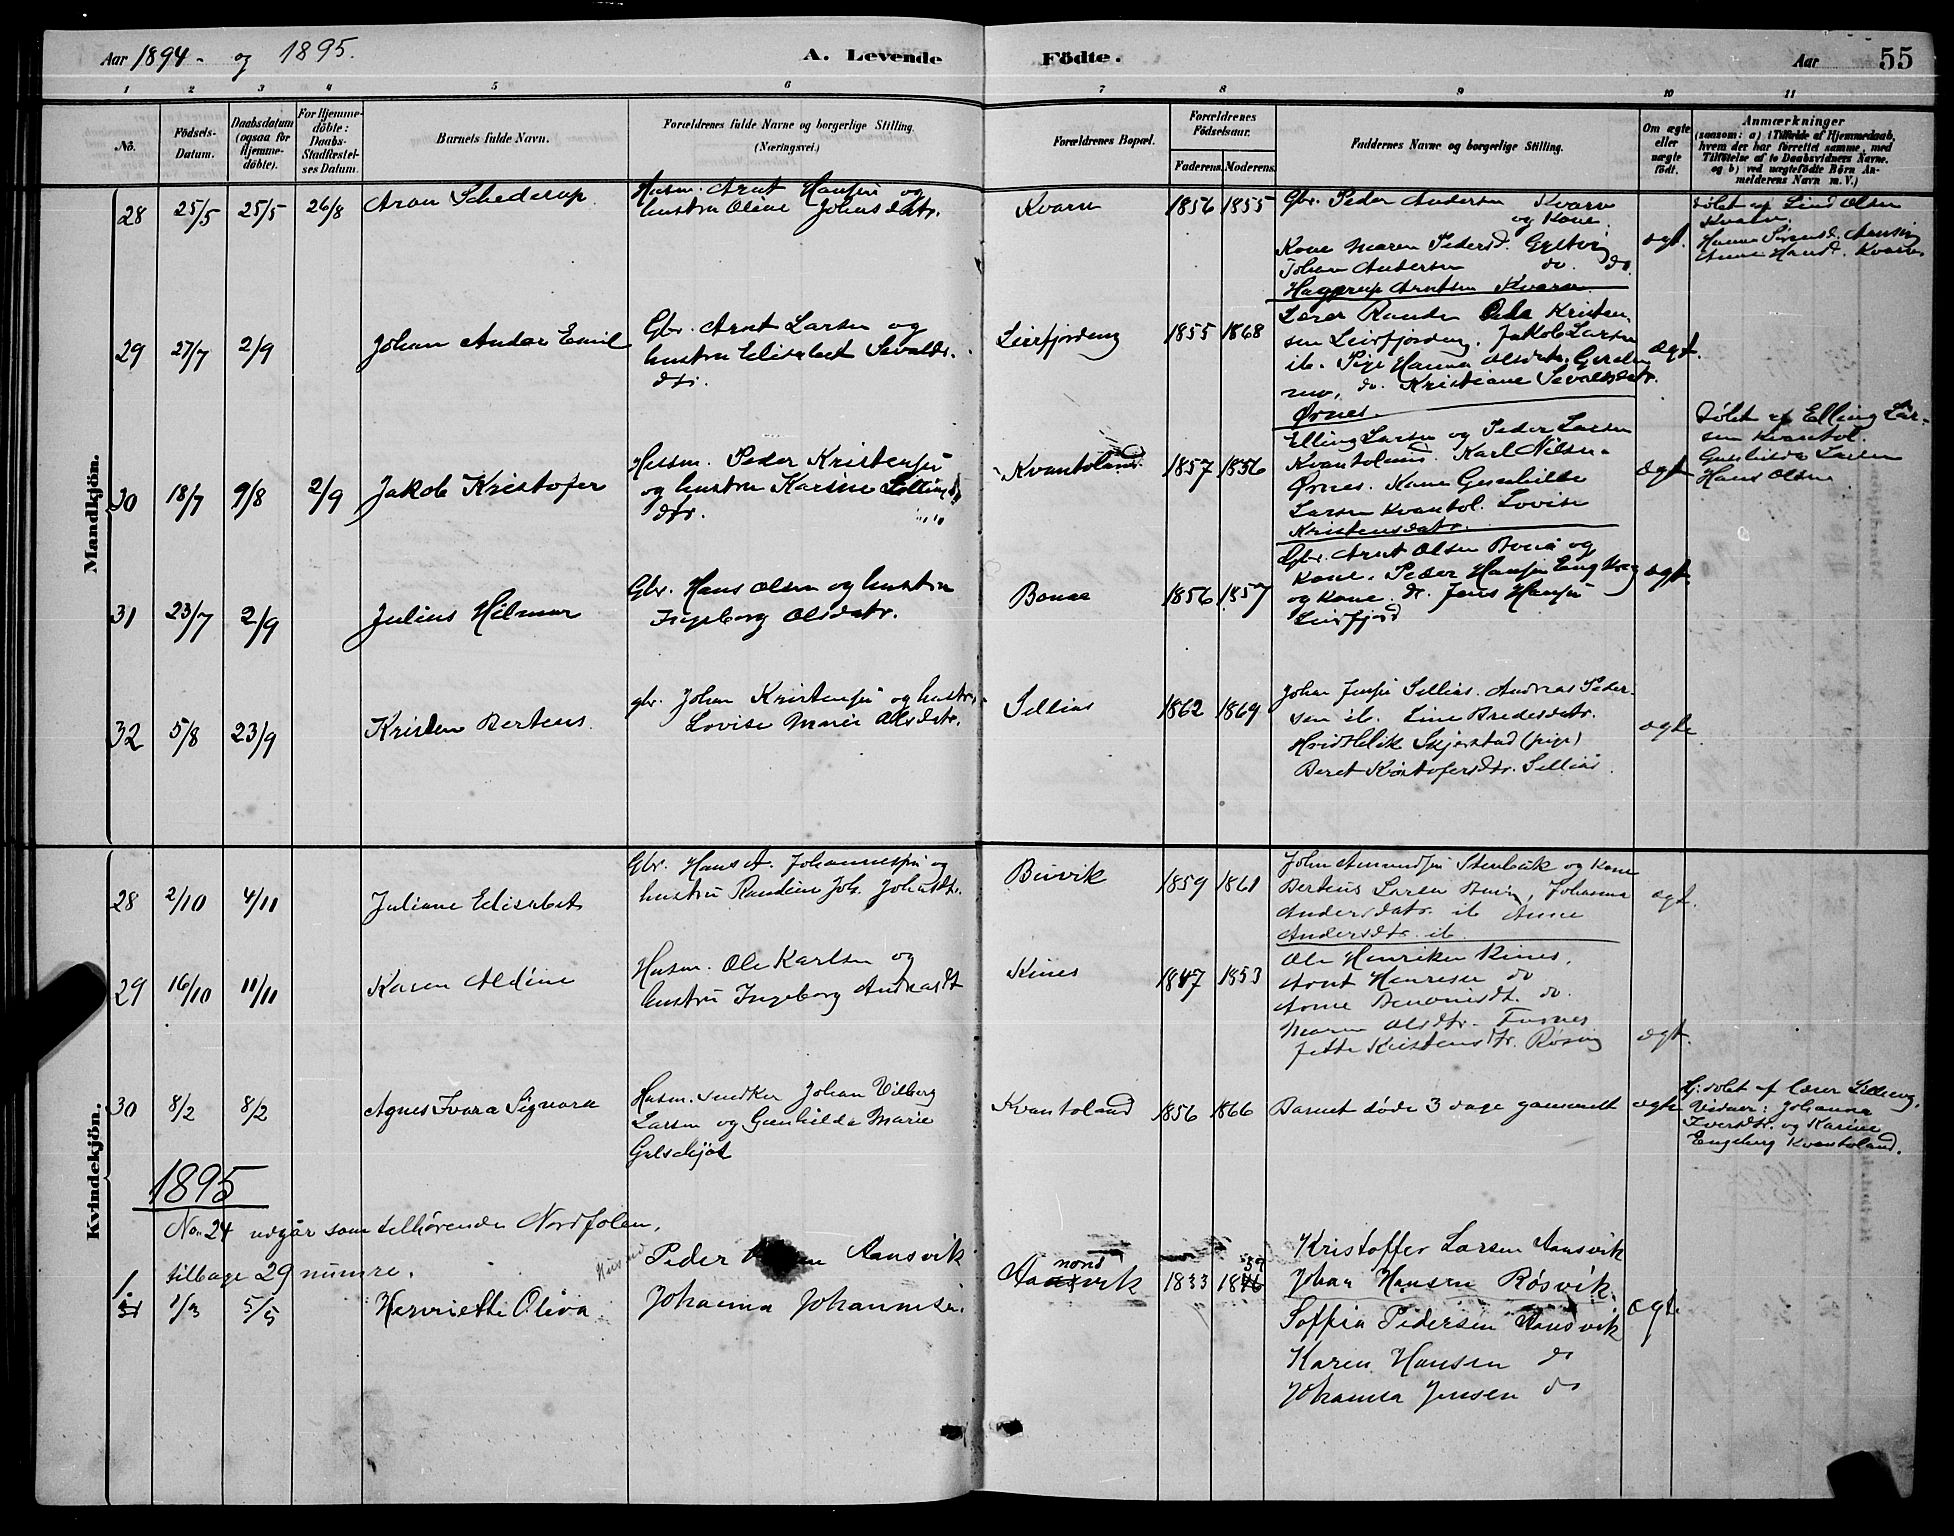 Aar 1894 - og 1895.
A. Levende Födte.
Aar 55
1 2 3 4 5 6 7 8 9 10 11
No.
Födsels-
Datum.
Daabsdatum
(ogsaa for
Hjemme-
döbte).
For Hjemme-
döbte:
Daabs-
Stadfæstel-
ses Datum.
Barnets fulde Navn.
Forældrenes fulde Navne og borgerlige Stilling.
(Næringsvei.)
Forældrenes Bopæl.
Forældrenes
Födselsaar.
Faderens. Moderens.
Faddernes Navne og borgerlige Stilling.
Om ægte
eller
uægte
født.
Anmærkninger
(saasom: a) i Tilfælde af Hjemmedaab,
hvem der har forrettet samme, med
Tilföielse af to Daabsvidners Navne.
og b) ved uægtefödte Börn An-
melderens Navn m. V.)
Mandkjön.
28 25/5 25/5 26/8 Aron Schederup
Husm. Arnt Hansen og
hustru Oline Johnsdatr.
Kvarv 1856 1855
Gbr. Peder Andersen Kvarv
og Kone.
Kone Maren Pedersd. Gyltvig
Johan Andersen do. do.
Hagerup Arntsen Kvarv
ægt.
Kvarv.
29 27/7 2/9 Johan Andor Emil
Gbr. Arnt Larsen og
hustru Elisabet Sevalds-
dtr.
Leirfjordeng 1855 1868
Kristen-
sen Leirfjordeng. Jakob Larsen
ib. Pige Hanna Olsdtr.
do. Kristiane Sevaldsdatr.
Ørnes.
ægt.
30 18/7 9/8 2/9 Jakob Kristofer
Husm. Peder Kristensen
og hustru Karine Ellings
dtr.
Kvantoland 1857 1856
Elling Larsen og Peder Larsen
Kvantoland Karl Nilsen
Ørnes. Kone Gunhilde
Larsen Kvantol. Lovise
Kristensdatr.
ægt
Døbt af Elling Lar-
sen Kvantol.
Gunhilde Larsen
Hans Olsen
31 23/7 2/9 Julius Hilmar
Gbr. Hans Olsen og hustru
Ingeborg Olsdatr.
Bonaa 1856 1857
Gbr. Arnt Olsen og
Kone. Peder Hansen Engkrog
og Kone. do. Jens Hansen
Leirfjord
ægt
32 5/8 23/9 Kristen Berteus
gbr. Johan Kristensen og hustru
Lovise Marie Olsdatr.
Sellias 1862 1869
Johan Jensen Sellias. Andreas Peder-
sen ib. Line Bredesdatr.
Skjerstad (pige)
Beret Kristofersdtr. Sellias.
ægte
Kvindekjön.
28 2/10 4/11 Juliane Elisabet
Gbr. Hans A. Johannessen og
hustru Randine Joh. Johnsdtr.
Buvik 1859 1861
John Amundsen Stenbak og Kone
Berteus Larsen Buvik, Johanna
Andersdatr. ib Anne
Andersdtr. ib.
ægt.
29 16/10 11/11 Karen Aldine
Husm. Ole Karlsen og
hustru Ingeborg Andreasdt
Kines 1847 1853
Ole Henriksen Kines.
Arnt Henriksen do
Anne Benonisdt. do.
Maren Olsdtr. Furnes
Jette Kristensdtr. Røsvig
ægt.
30 8/2 8/2 Agnes Ivara Signora
Husm. snedker Johan Vilberg
Larsen og Gunhilda Marie
Kvantoland 1856 1866
Barnet døde 3 dage gammelt
ægte
Hj. døbt af lærer
Vidner: Johanna
Iversdtr. og Karine
Engeberg Kvantoland.
1895
No. 24 udgår som tilhørende Nordfolen,
tilbage 29 numre.
1. 1/3 5/5 Henriette Oliva
Peder Aansvik
Johanna Johannesen.
nord
Aansvik 1833 1846 59
Kristoffer Larsen Aansvik
Johan Hansen Røsvik.
Soffia Pedersen Aansvik
Karen Hansen do
Johanna Jensen do
ægte